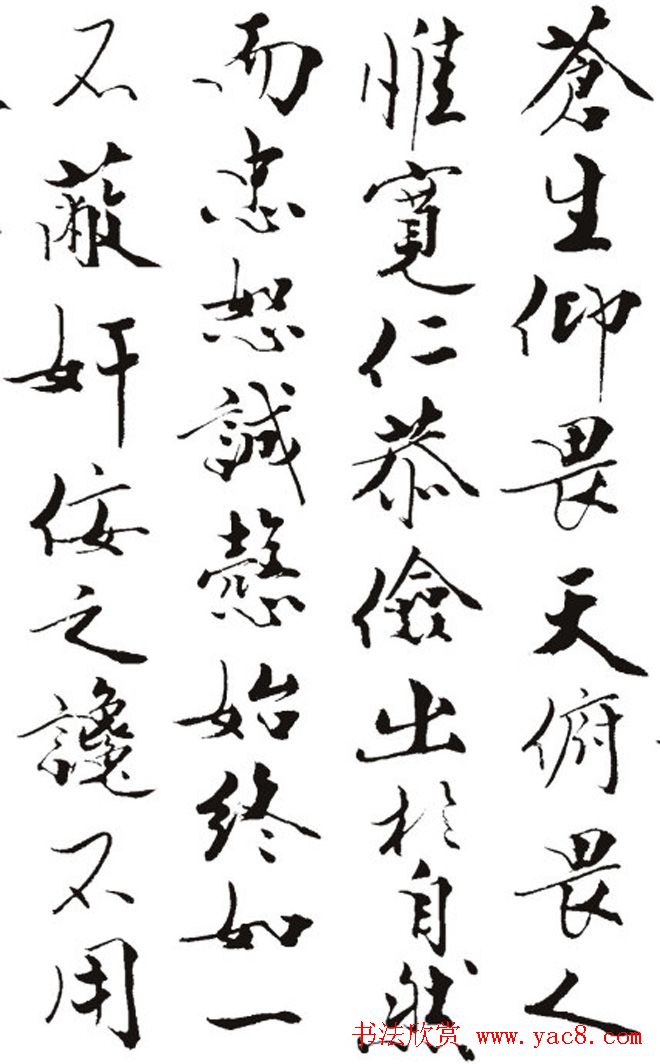 蒼生仰畏天俯畏人
惟寬仁恭儉出於自然
而忠恕誠慤始終如一
不蔽奸佞之讒不用
书法欣赏 www.yac8.com